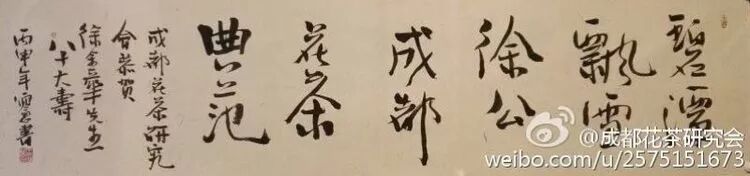 碧潭
飄雪
徐公
成都
花茶
典范
成都花茶研究
会恭贺
徐金華先生
八十大寿
丙申年書
@成都花茶研究会
weibo.com/u/2575151673